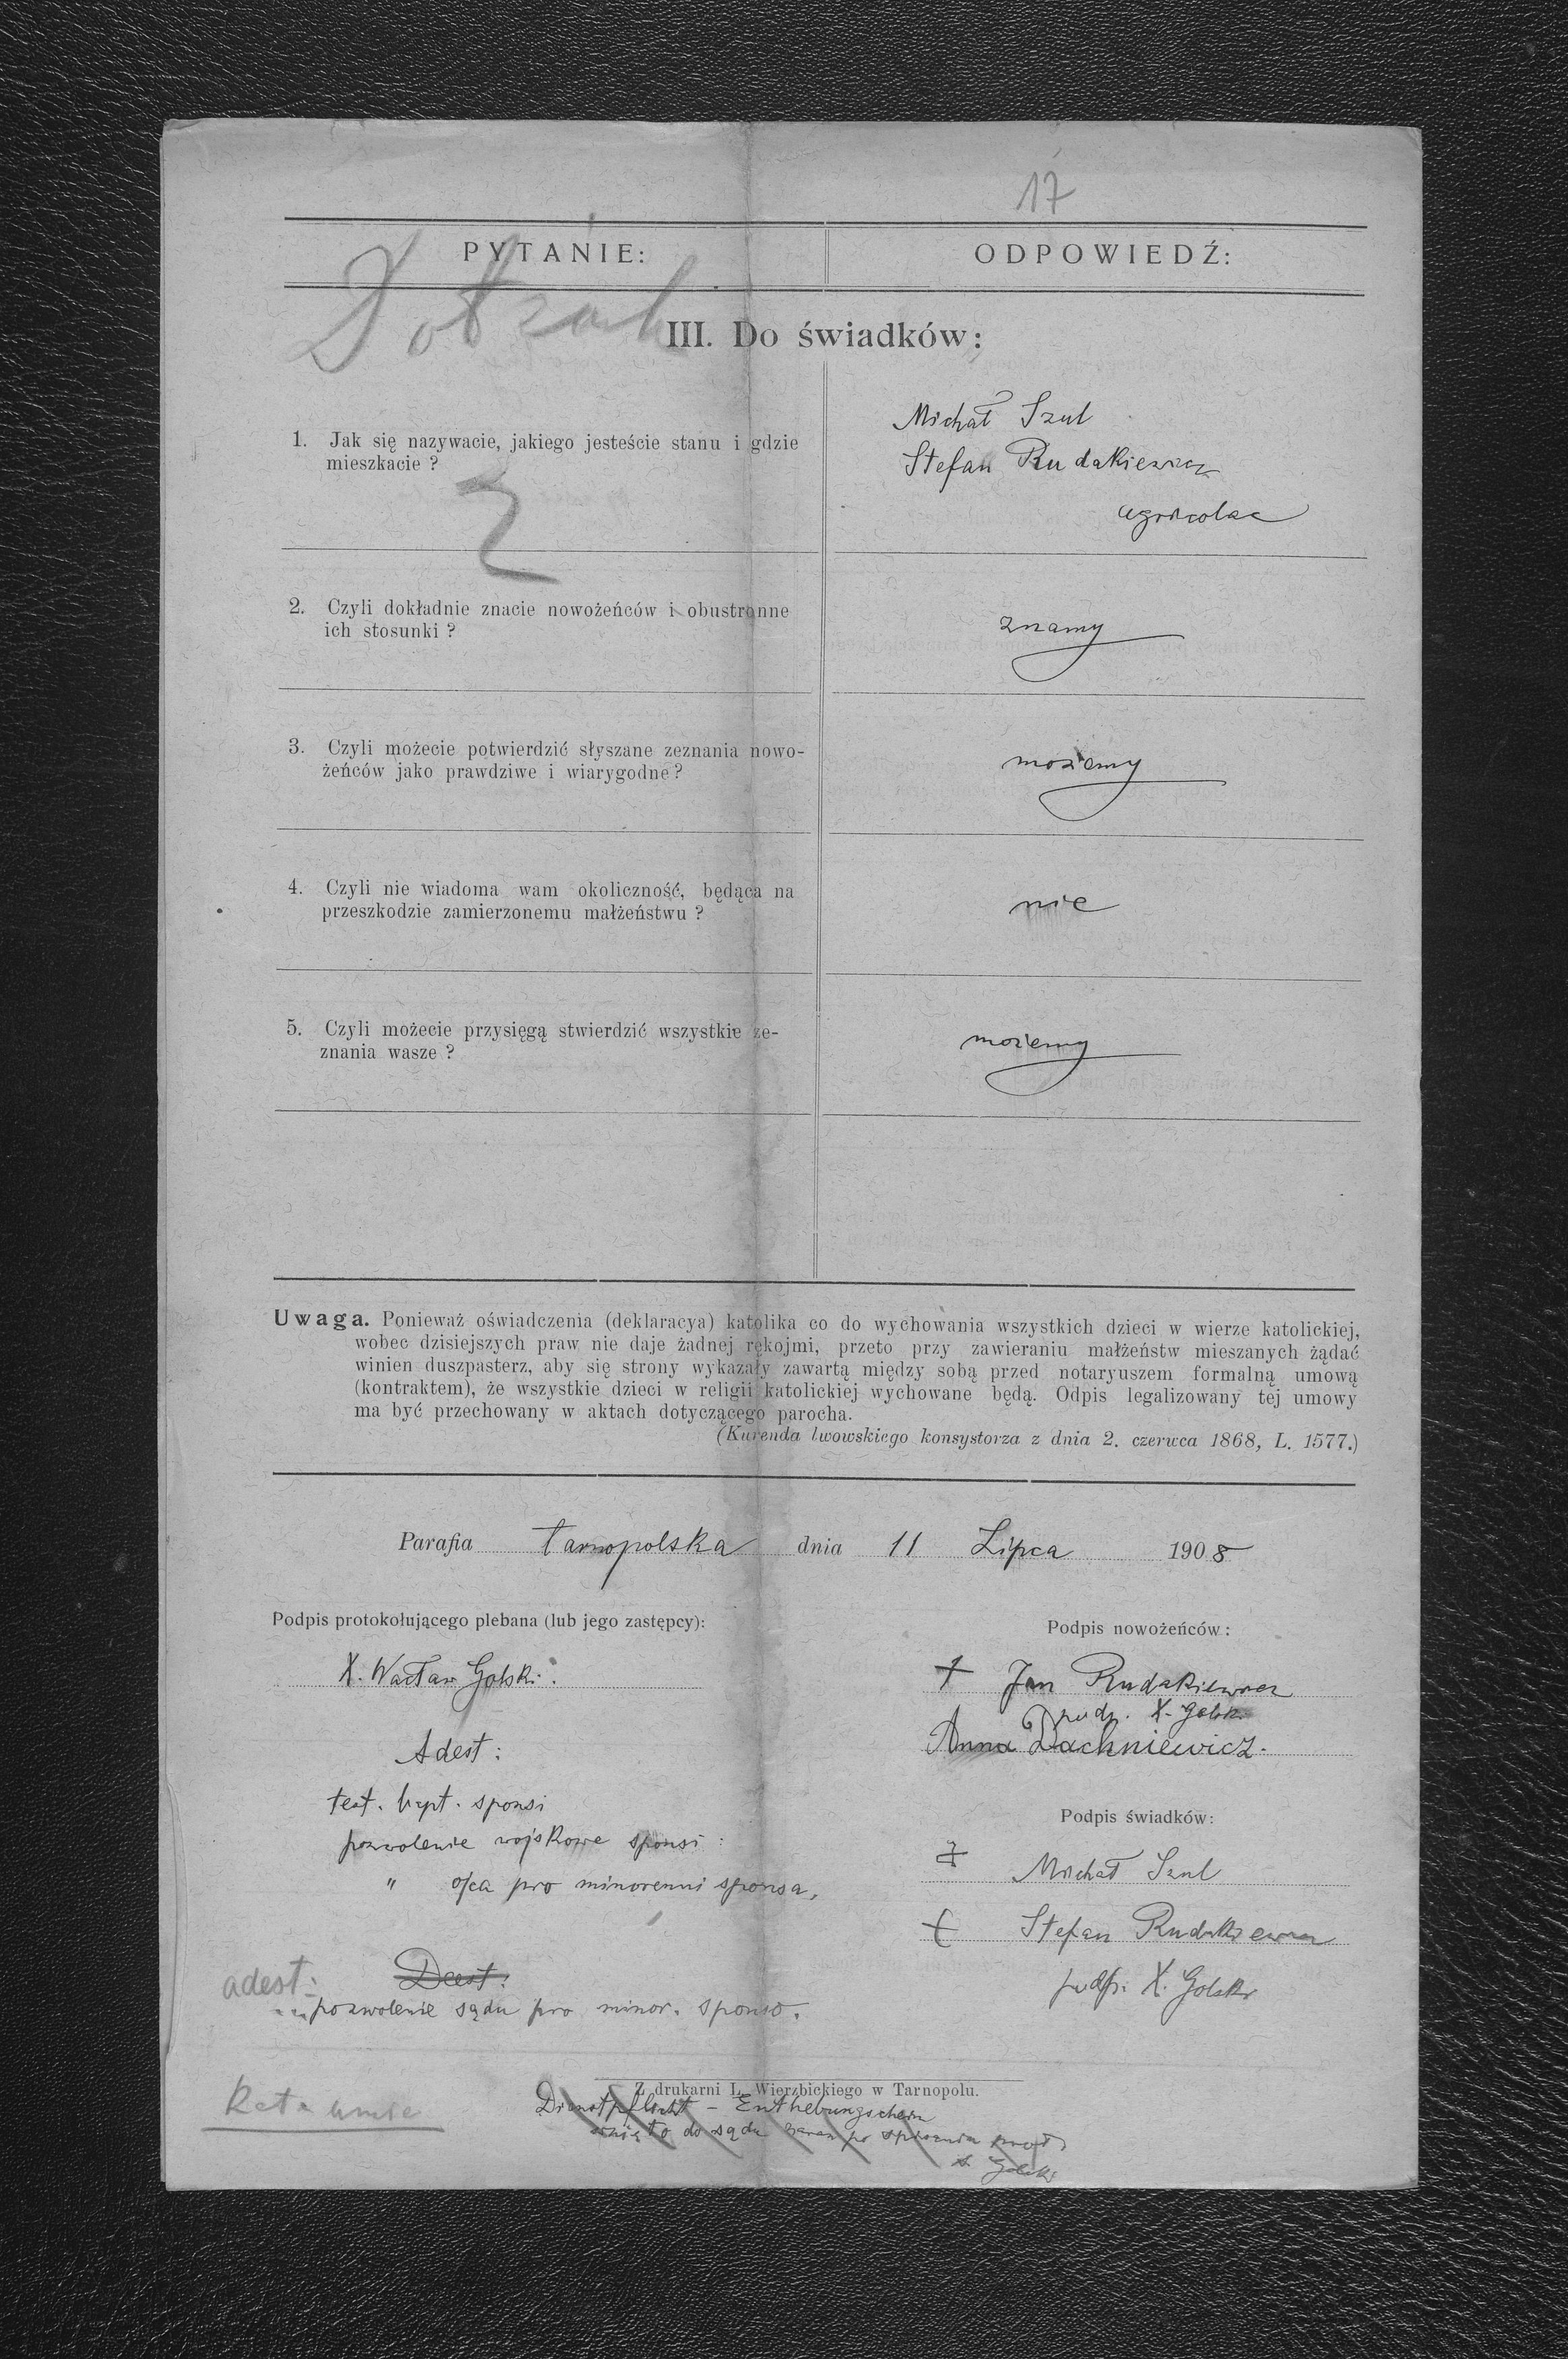 17
PYTANIE:
ODPOWIEDŹ:
III. Do świadków:
1. Jak się nazywacie, jakiego jesteście stanu i gdzie
mieszkacie ?
Michał Szul
Stefan Rudakiewicz
agricolae
2. Czyli dokładnie znacie nowożeńców i obustronne
ich stosunki ?
znamy
3. Czyli możecie potwierdzić słyszane zeznania nowo-
żeńców jako prawdziwe i wiarygodne ?
możemy
4. Czyli nie wiadoma wam okoliczność, będąca na
przeszkodzie zamierzonemu małżeństwu ?
nie
5. Czyli możecie przysięgą stwierdzić wszystkie ze-
znania wasze ?
możemy
Uwaga. Ponieważ oświadczenia (deklaracya) katolika co do wychowania wszystkich dzieci w wierze katolickiej,
wobec dzisiejszych praw nie daje żadnej rękojmi, przeto przy zawieraniu małżeństw mieszanych żądać
winien duszpasterz, aby się strony wykazały zawartą między sobą przed notaryuszem formalną umową
(kontraktem), że wszystkie dzieci w religii katolickiej wychowane będą. Odpis legalizowany tej umowy
ma być przechowany w aktach dotyczącego parocha.
(Kurenda lwowskiego konsystorza z dnia 2. czerwca 1868, L. 1577.)
Parafia tarnopolska dnia 11 Lipca 1908
Podpis protokołującego plebana (lub jego zastępcy):
X. Wacław Golski.
Adest:
test. bapt. sponsi
pozwolenie wojskowe sponsi :
" ojca pro minorenni sponsa,
Deest:
adest:
pozwolenie sądu pro minor. sponso.
Podpis nowożeńców :
+ Jan Rudakiewicz
podp. X. Golski
Anna Dachniewicz.
Podpis świadków:
+ Michał Szul
+ Stefan Rudakiewicz
podp. X. Golski
Z drukarni L. Wierzbickiego w Tarnopolu.
Dienstpflicht - Enthebungschein
do sądu zaraz po
X. Golski